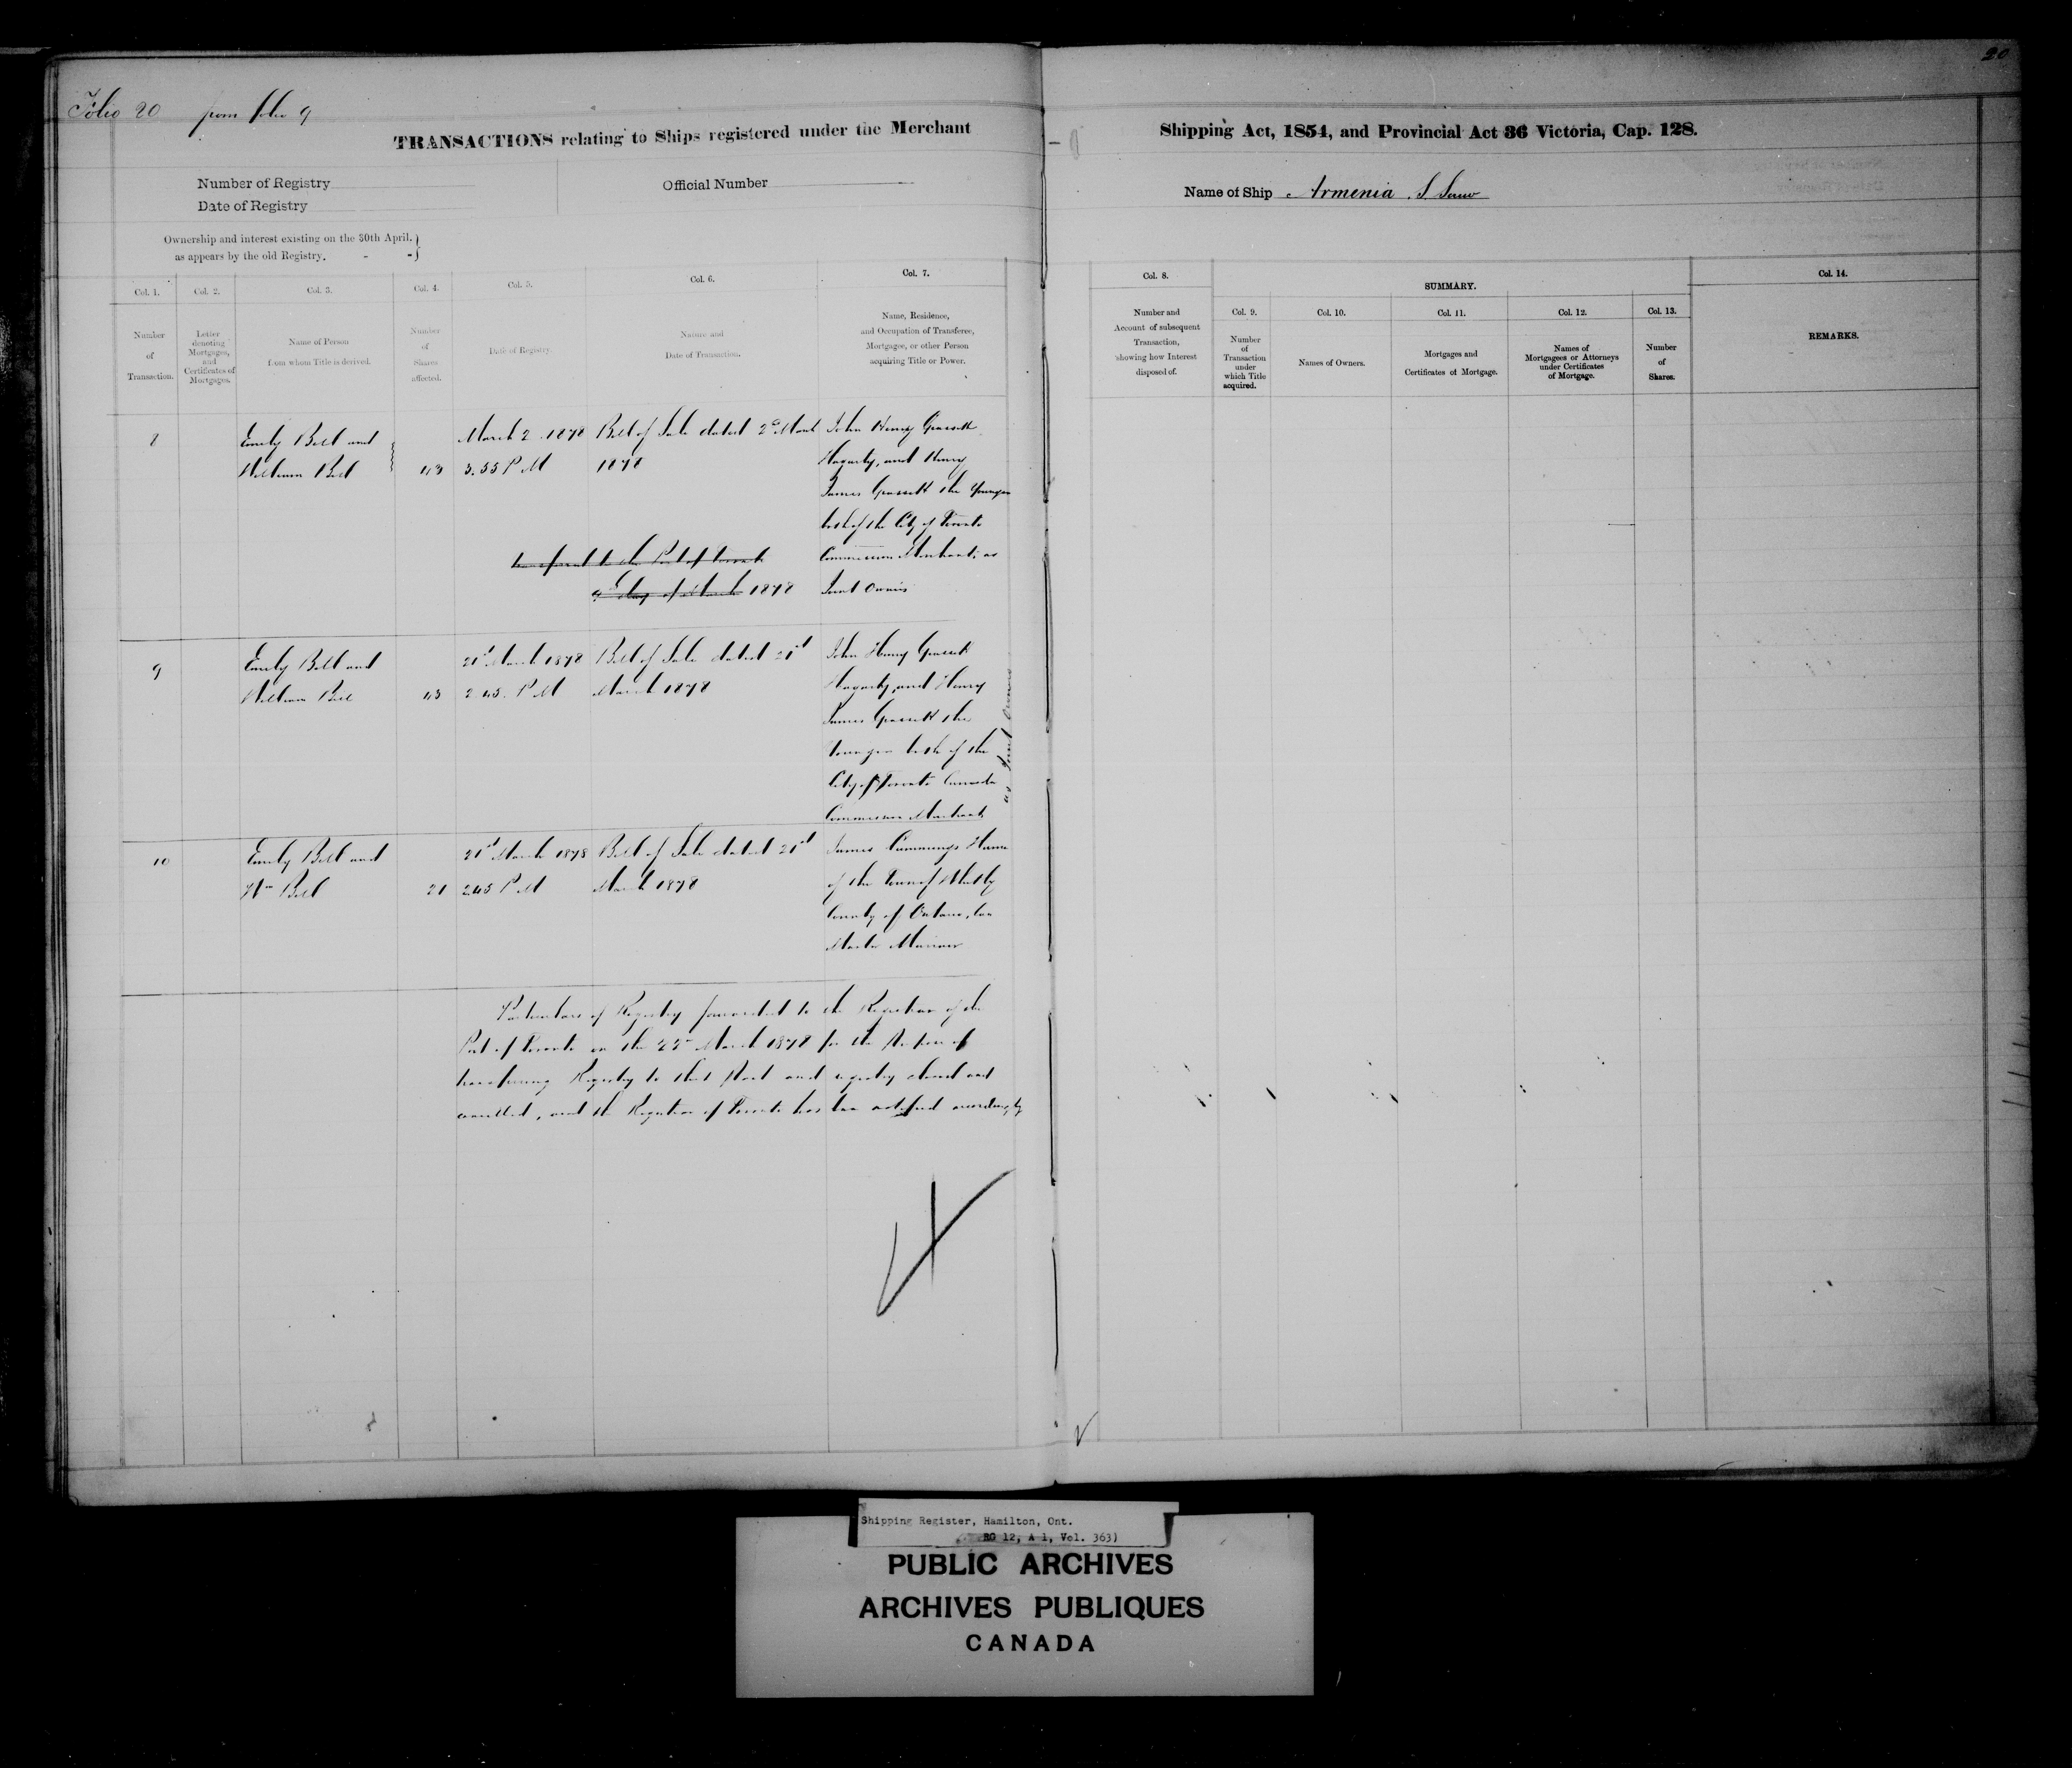 20
Folio 20 from folio 9
TRANSACTIONS relating to Ships registered under the Merchant
Shipping Act, 1854, and Provincial Act 36 Victoria, Cap. 128.
Number of Registry
Official Number
Date of Registry
Name of Ship Armenia S. Screw
Ownership and interest existing on the 30th April.
as appears by the old Registry. - -
Col. 1.
Number
of
Transaction.
Col. 2.
Letter
denoting
Mortgages,
and
Certificates of
Mortgages.
Col. 3.
Name of Person
from whom Title is derived.
Col. 4.
Number
of
Shares
affected.
Col. 5.
Date of Registry.
Col. 6.
Nature and
Date of Transaction.
Col. 7.
Name, Residence,
and Occupation of Transferee,
Mortgagee, or other Person
acquiring Title or Power.
Col. 8.
Number and
Account of subsequent
Transaction,
showing how Interest
disposed of.
SUMMARY.
Col. 9.
Number
of
Transaction
under
which Title
acquired.
Col. 10.
Names of Owners.
Col. 11.
Mortgages and
Certificates of Mortgage.
Col. 12.
Names of
Mortgagees or Attorneys
under Certificates
of Mortgage.
Col. 13.
Number
of
Shares.
Col. 14.
REMARKS.
8
Emily Bell and
William Bell
43
March 2. 1878
3.55 P M
Bill of Sale dated 2nd March
1878
John Henry Grasett
Hagarty, and Henry
James Grasett the Younger
both of the City of Toronto
Commission Merchants as
Joint Owners
transferred to the Port of Toronto
9th day of March 1878
9
Emily Bell and
William Bell
43
21st March 1878
2.45. P M
Bill of Sale dated 21st
March 1878
John Henry Grasett
Hagarty, and Henry
James Grasett the
Younger both of the
City of Toronto Canada
Commission Merchants
as Joint Owners
10
Emily Bell and
Wm Bell
21
21st March 1878
2.45 P M
Bill of Sale dated 21st
March 1878
James Cummings
of the Town of Whitby
County of Ontario,
Master Mariner
Particulars of Registry forwarded to the Registrar of the
Port of Toronto on the 22nd March 1878 for the Purpose of
transferring Registry to that Port and registry closed and
cancelled, and the Registrar of Toronto has been notified accordingly
Shipping Register, Hamilton, Ont.
RG 12, A 1, Vol. 363)
PUBLIC ARCHIVES
ARCHIVES PUBLIQUES
CANADA